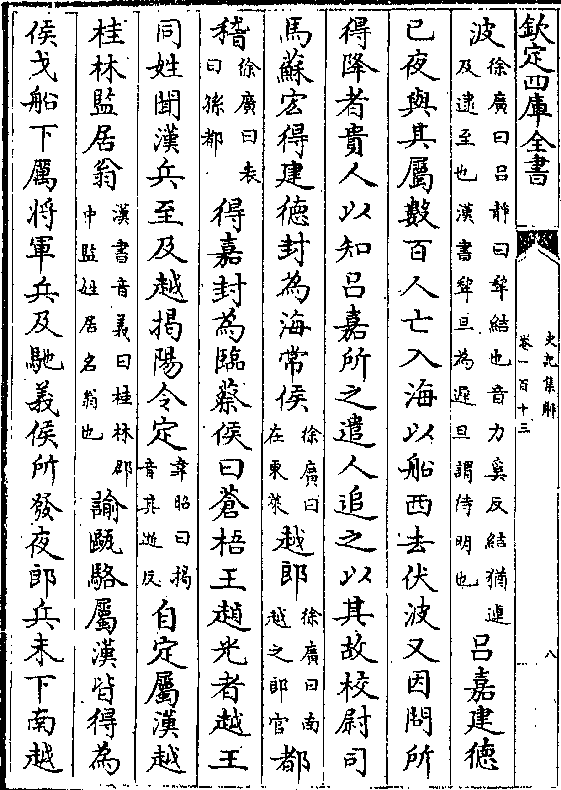 欽定四庫全書
史記集解
卷一百十三
八
波徐廣曰呂靜曰犂結也音力奚反結猶連及逮至也漢書犂旦為遲旦謂待明也呂嘉建德
已夜與其屬數百人亡入海以船西去伏波又因問所
得降者貴人以知呂嘉所之遣人追之以其故校尉司
馬蘇宏得建德封為海常侯徐廣曰在東萊越郎徐廣曰南越之郎官都
稽徐廣曰表曰孫都得嘉封為臨蔡侯曰蒼梧王趙光者越王
同姓聞漢兵至及越揭陽令定韋昭曰揭音其逝反自定屬漢越
桂林監居翁漢書音義曰桂林郡中監姓居名翁也諭甌駱屬漢皆得為
侯戈船下厲將軍兵及馳義侯所發夜郎兵未下南越